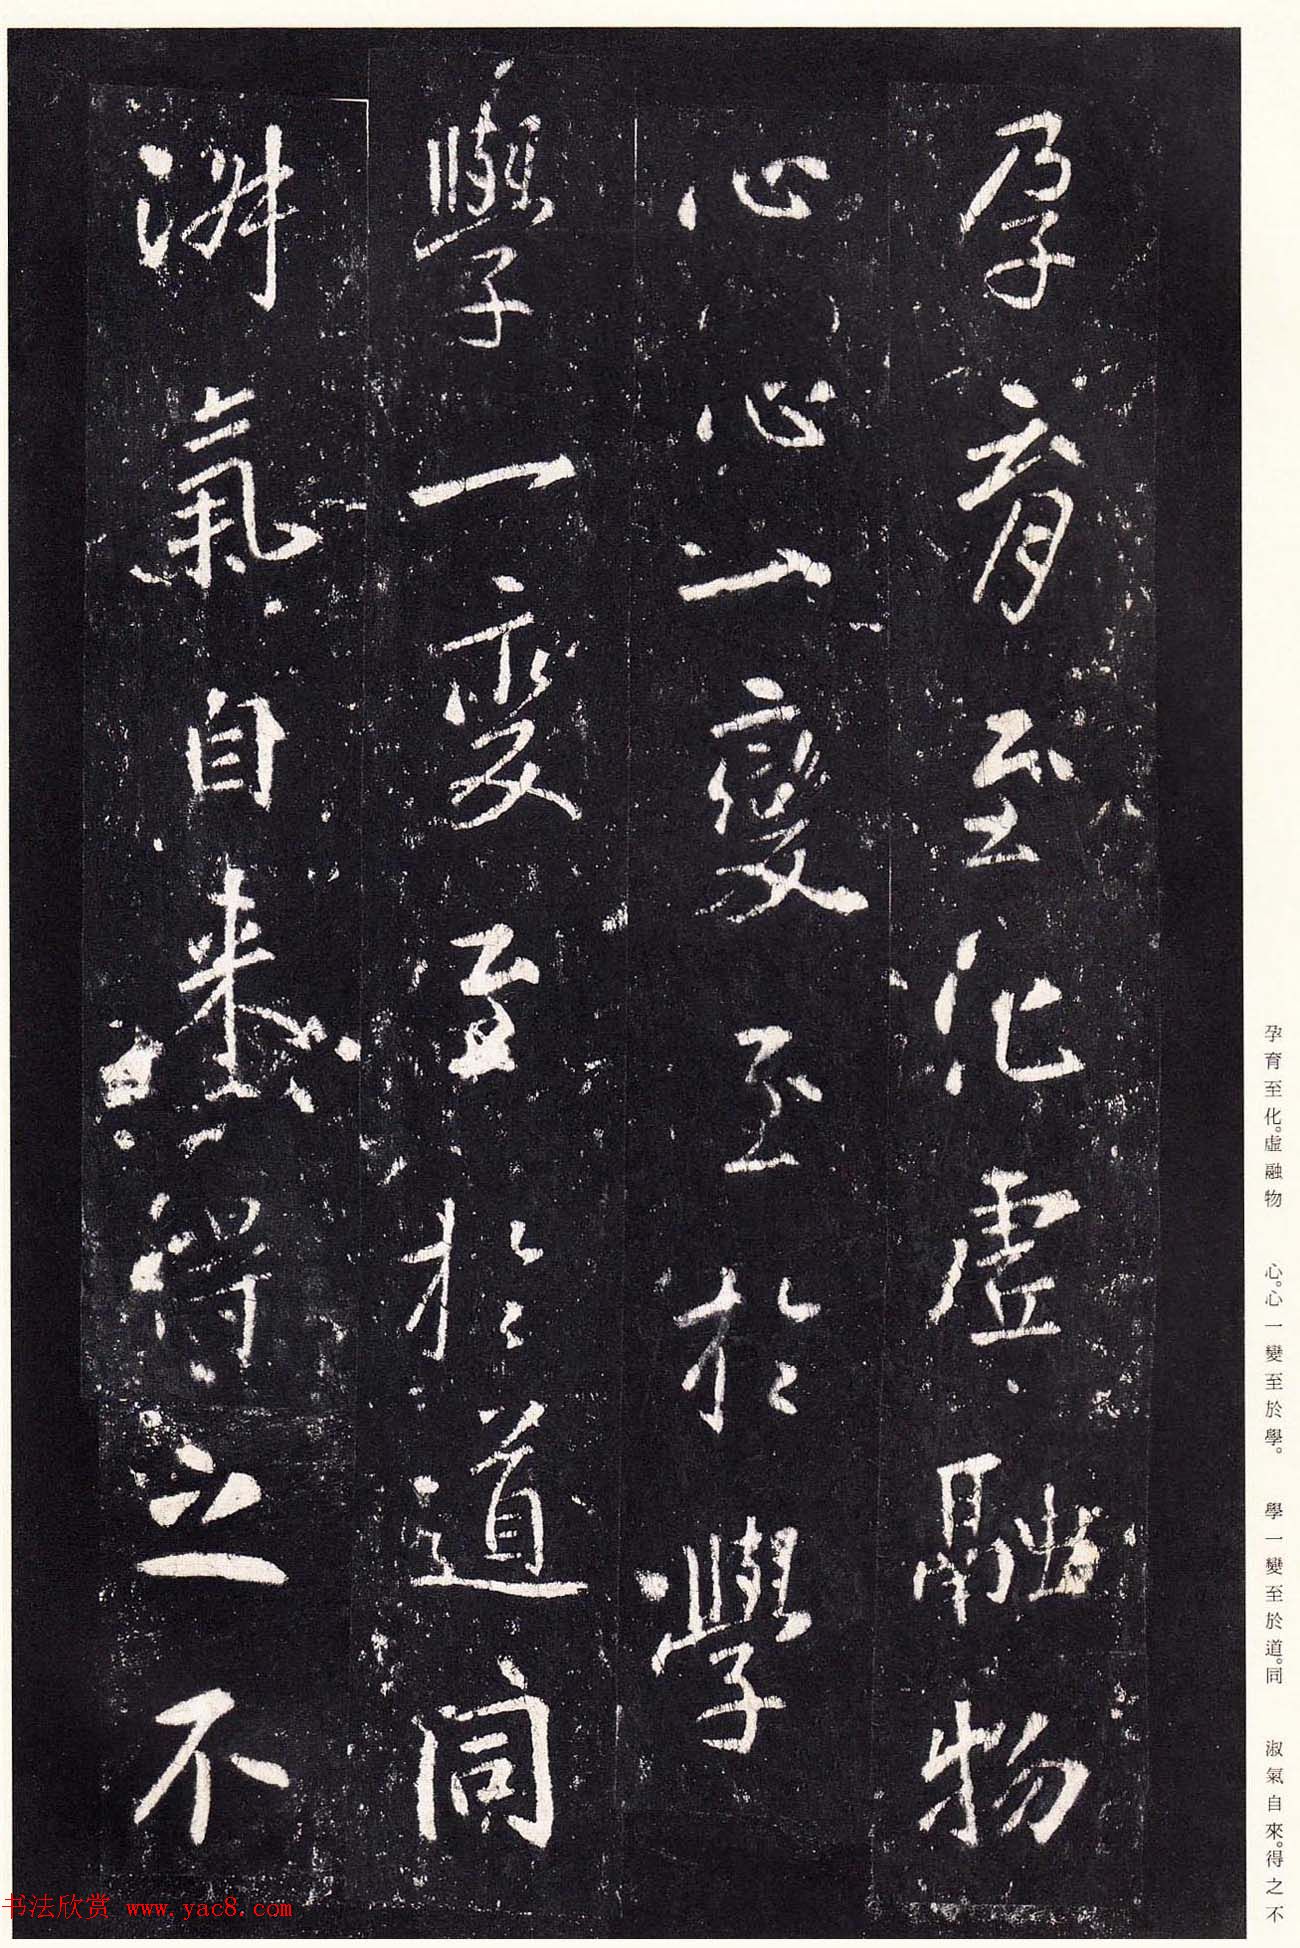 孕育至化虛融物
心心一變至於學
學一變至於道同
淑氣自来得之不
孕育至化。虛融物
心。心一變至於學。
學一變至於道。同
淑氣自來。得之不
书法欣赏 www.yac8.com